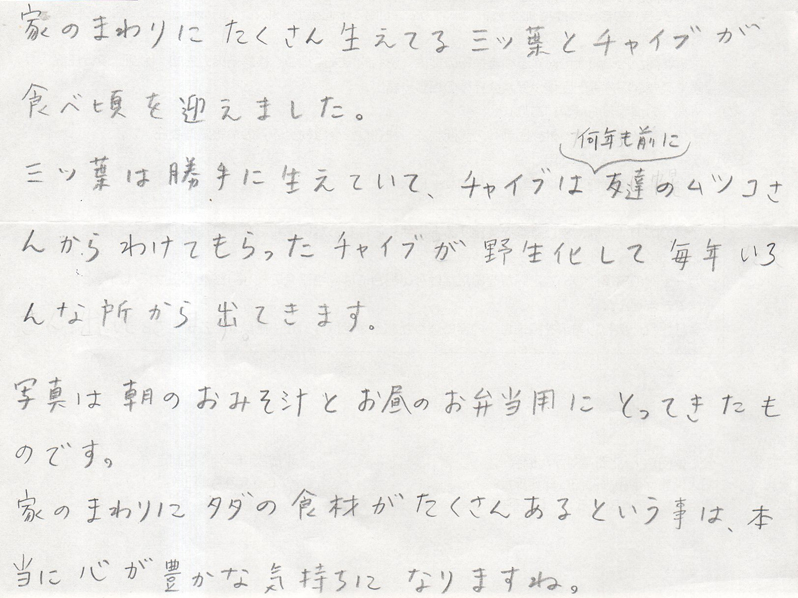 家のまわりに たくさん生えてる 三ッ葉とチャイブが
食べ頃を迎えました。
何年も前に
三ッ葉は勝手に生えていて、チャイブは友達のムツコさ
んから わけてもらった チャイブが 野生化して 毎年 いろ
んな所から 出てきます。
写真は朝のおみそ汁とお昼のお弁当用に とってきたも
のです。
家のまわりに タダの食材が たくさんあるという事は、本
当に心が豊かな気持ちに なりますね。